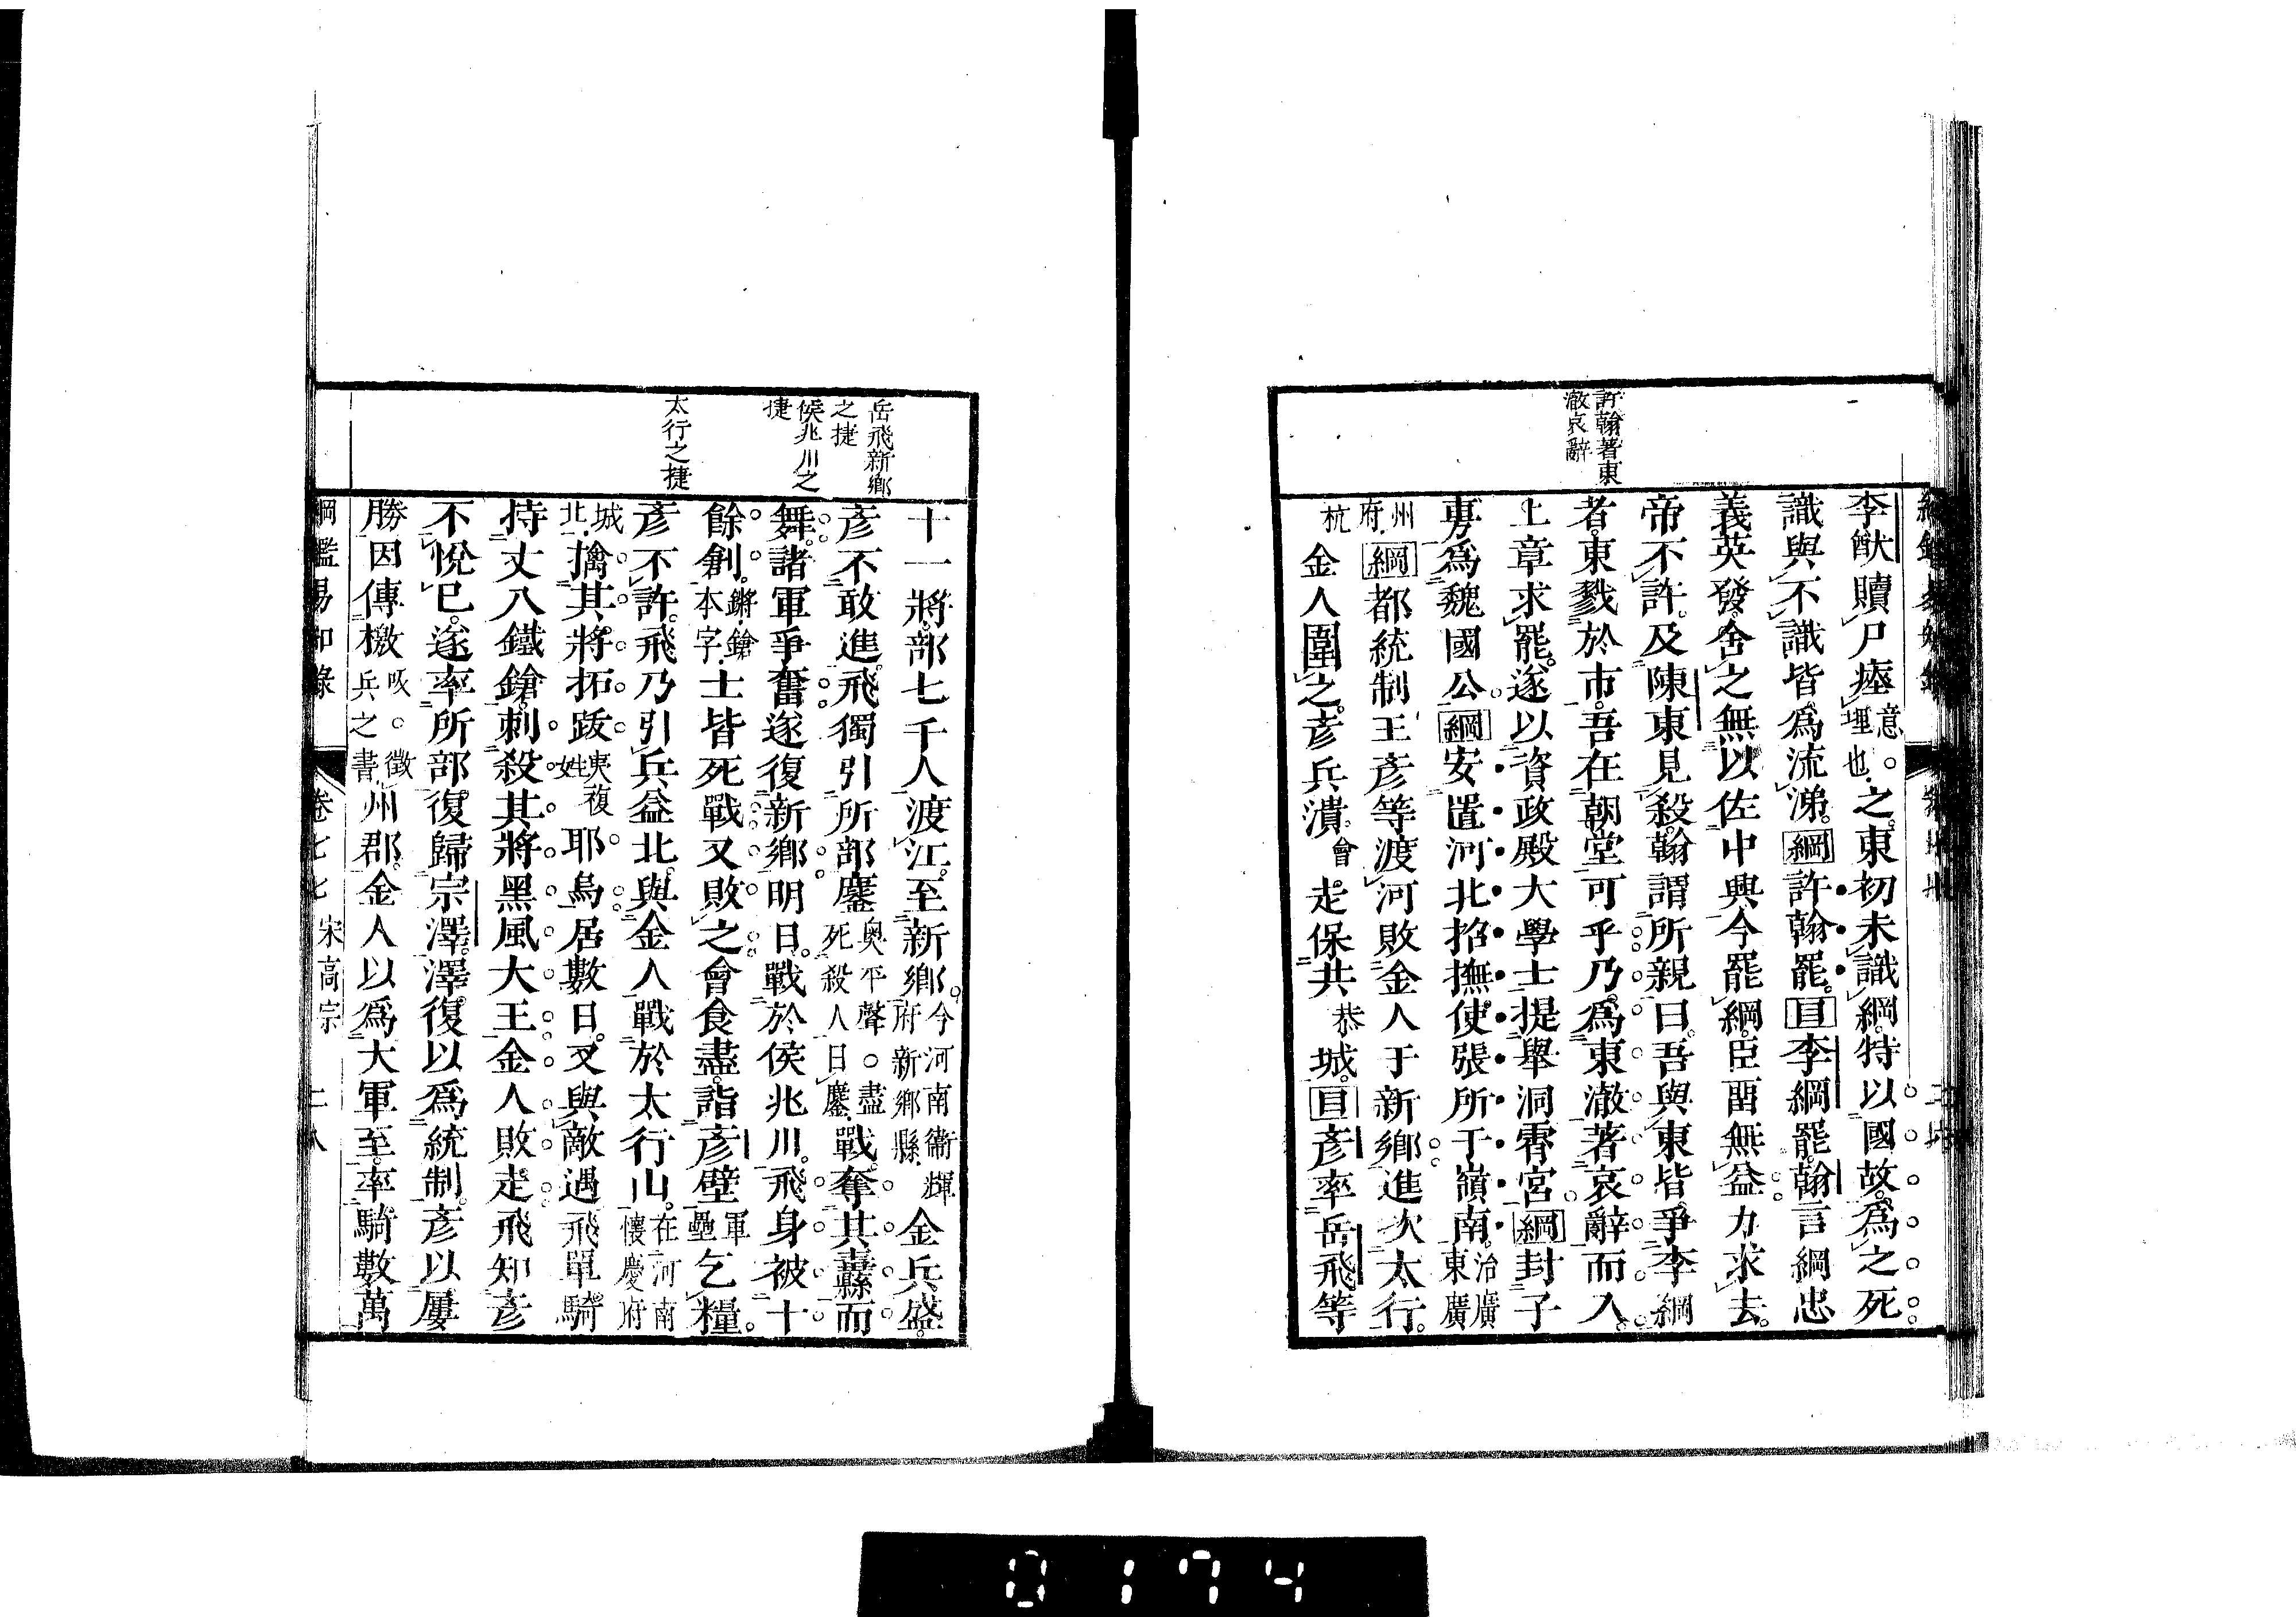 許翰著東
澈哀辭
李猷贖尸瘞意。埋也之。東初未識綱。特以國故。爲之死。
識與不識皆爲流涕。綱許翰罷。目李綱罷。翰言綱忠
義英發。舍之無以佐中興。今罷綱。臣畱無益。力求去。
帝不許。及陳東見殺。翰謂所親曰。吾與東皆爭李綱
者。東戮於市。吾在朝堂可乎。乃爲東澈著哀辭而入。
上章求罷。遂以資政殿大學士提舉洞霄宮。綱封子
旉爲魏國公。綱安置河北招撫使張所于嶺南。治廣東廣
州府。綱都統制王彥等渡河敗金人于新鄉。進次太行。
杭金人圍之。彥兵潰。會走保共恭城。目彥率岳飛等
岳飛新鄉
之捷
侯兆川之
捷
太行之捷
十一將。部七千人渡江。至新鄉。今河南衞輝府新鄉縣金兵盛。
彥不敢進。飛獨引所部鏖奧平聲。盡死殺人曰鏖戰。奪其纛而
舞。諸軍爭奮。遂復新鄉。明日。戰於侯兆川。飛身被十
餘創。鏘鎗本字士皆死戰。又敗之。會食盡。詣彥壁軍壘乞糧。
彥不許。飛乃引兵益北。與金人戰於太行山。在河南懷慶府
城北擒其將拓跋夷複姓耶烏。居數日。又與敵遇。飛單騎
持丈八鐵鎗。刺殺其將黑風大王。金人敗走。飛知彥
不悅已。遂率所部。復歸宗澤。澤復以爲統制。彥以屢
勝。因傳檄吸。徵兵之書州郡。金人以爲大軍至。率騎數萬
綱鑑易知錄 卷七七 宋高宗 二八
0174